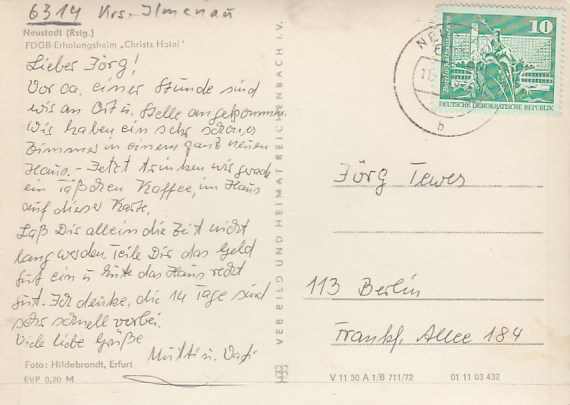 6314 Krs. Ilmenau
Neustadt (Rstg.)
FDGB-Erholungsheim „Christs Hotel"
Lieber Jörg!
Vor ca. einer Stunde sind
wir an Ort u. Stelle angekommen.
Wir haben ein sehr schönes
Zimmer in einem ganz neuen
Haus. - Jetzt trinken wir grad
ein Täßchen Kaffee, im Haus
auf dieser Karte.
Laß Dir allein die Zeit nicht
lang werden, teile Dir das Geld
gut ein u. hüte das Haus recht
gut. Ich denke, die 14 Tage sind
sehr schnell vorbei.
Viele liebe Grüße
Mutti u. Vati
Foto: Hildebrandt, Erfurt
EVP 0,20 M
VEB BILD UND HEIMAT REICHENBACH I. V.
NEU
10
DEUTSCHE DEMOKRATISCHE REPUBLIK
b
Jörg Tewes
113 Berlin
Frankf. Allee 184
V 11 50 A 1/B 711/72 01 11 03 432